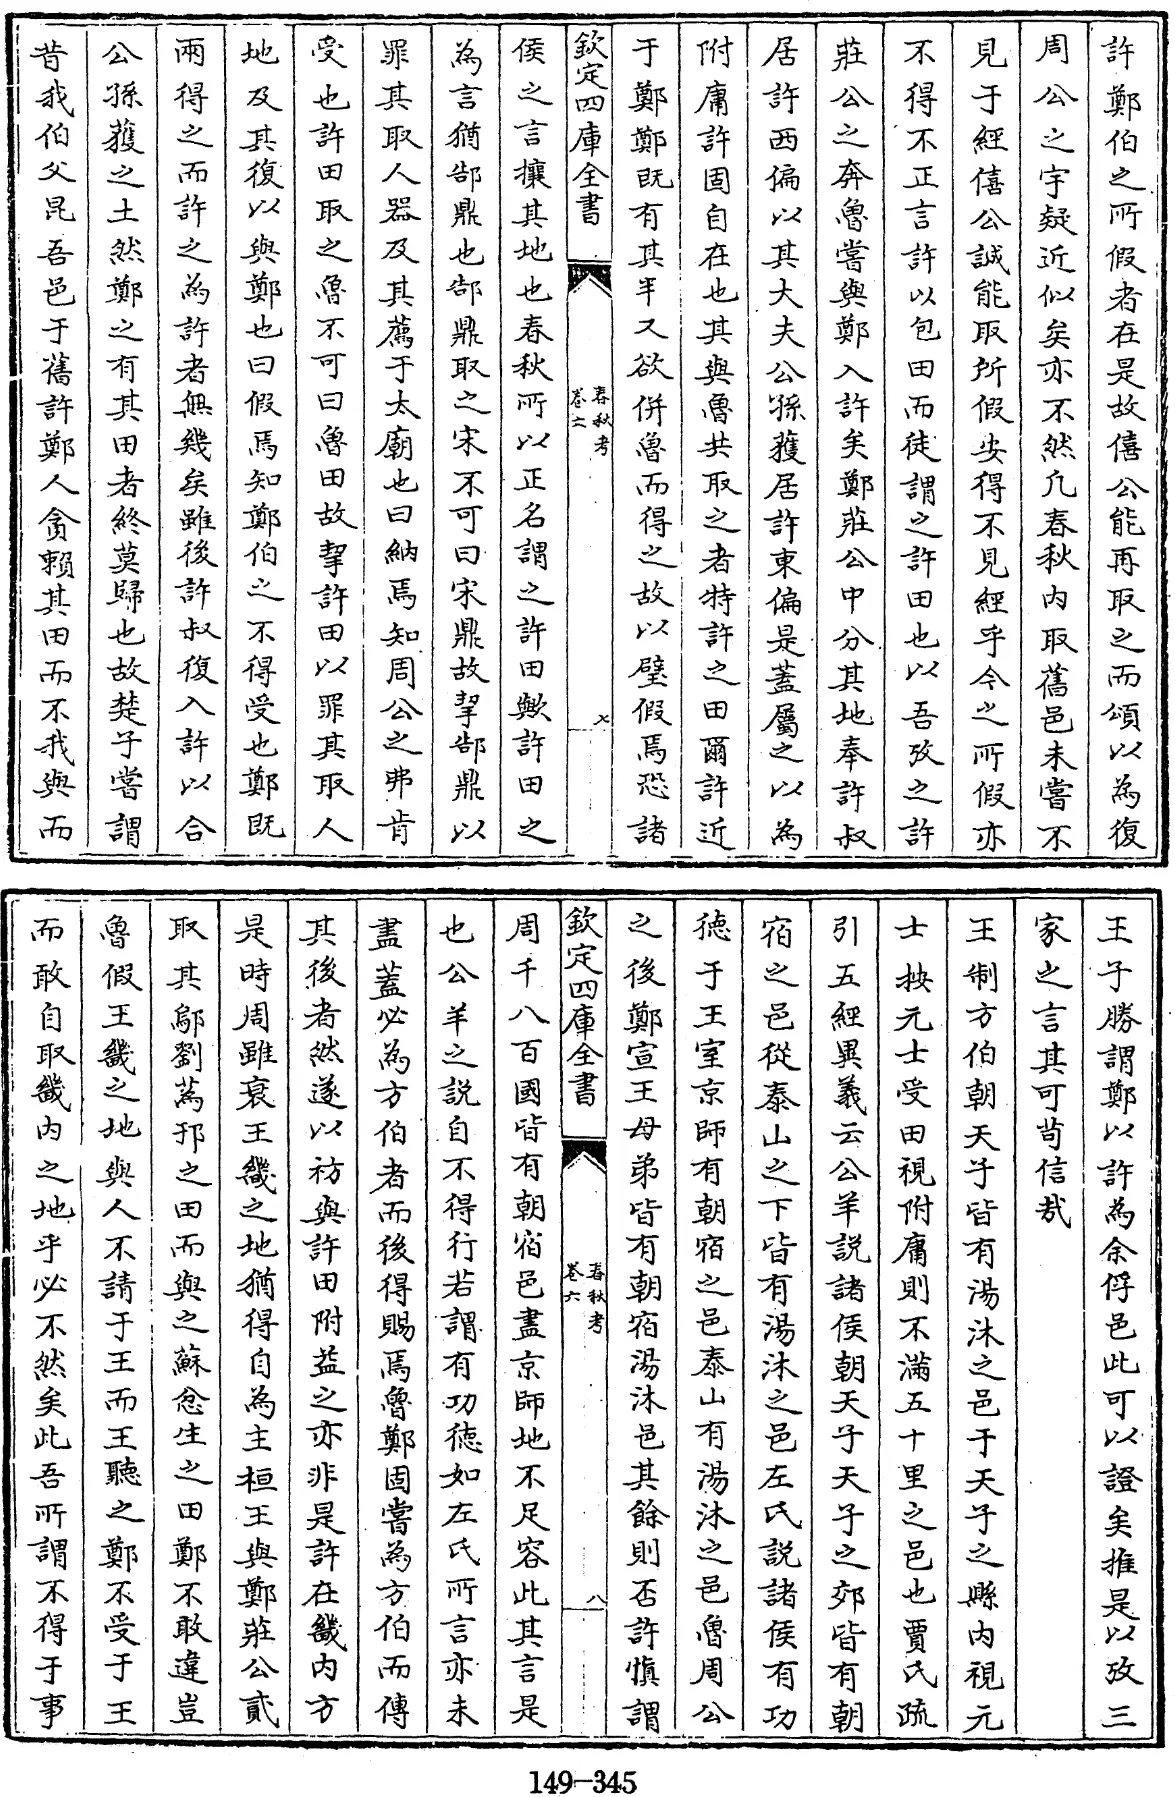 許鄭伯之所假者在是故僖公能再取之而頌以為復
周公之宇疑近似矣亦不然凡春秋內取舊邑未嘗不
見于經僖公誠能取所假安得不見經乎今之所假亦
不得不正言許以包田而徒謂之許田也以吾攷之許
莊公之奔魯嘗與鄭入許矣鄭莊公中分其地奉許叔
居許西偏以其大夫公孫獲居許東偏是蓋屬之以為
附庸許固自在也其與魯共取之者特許之田爾許近
于鄭鄭既有其半又欲併魯而得之故以璧假焉恐諸
欽定四庫全書
春秋考
卷六
七
侯之言攘其地也春秋所以正名謂之許田歟許田之
為言猶郜鼎也郜鼎取之宋不可曰宋鼎故挈郜鼎以
罪其取人器及其薦于太廟也曰納焉知周公之弗肯
受也許田取之魯不可曰魯田故挈許田以罪其取人
地及其復以與鄭也曰假焉知鄭伯之不得受也鄭既
兩得之而許之為許者無幾矣雖後許叔復入許以合
公孫獲之土然鄭之有其田者終莫歸也故楚子嘗謂
昔我伯父昆吾邑于舊許鄭人貪賴其田而不我與而
王子勝謂鄭以許為余俘邑此可以證矣推是以攷三
家之言其可苟信哉
王制方伯朝天子皆有湯沐之邑于天子之縣內視元
士按元士受田視附庸則不滿五十里之邑也賈氏疏
引五經異義云公羊説諸侯朝天子天子之郊皆有朝
宿之邑從泰山之下皆有湯沐之邑左氏說諸侯有功
德于王室京師有朝宿之邑泰山有湯沐之邑魯周公
之後鄭宣王母弟皆有朝宿湯沐邑其餘則否許慎謂
欽定四庫全書
春秋考
卷六
八
周千八百國皆有朝宿邑盡京師地不足容此其言是
也公羊之説自不得行若謂有功德如左氏所言亦未
盡蓋必為方伯者而後得賜焉魯鄭固嘗為方伯而傳
其後者然遂以祊與許田附益之亦非是許在畿內方
是時周雖衰王畿之地猶得自為主桓王與鄭莊公貳
取其鄔劉蒍邘之田而與之蘇忿生之田鄭不敢違豈
魯假王畿之地與人不請于王而王聽之鄭不受于王
而敢自取畿內之地乎必不然矣此吾所謂不得于事
149-345